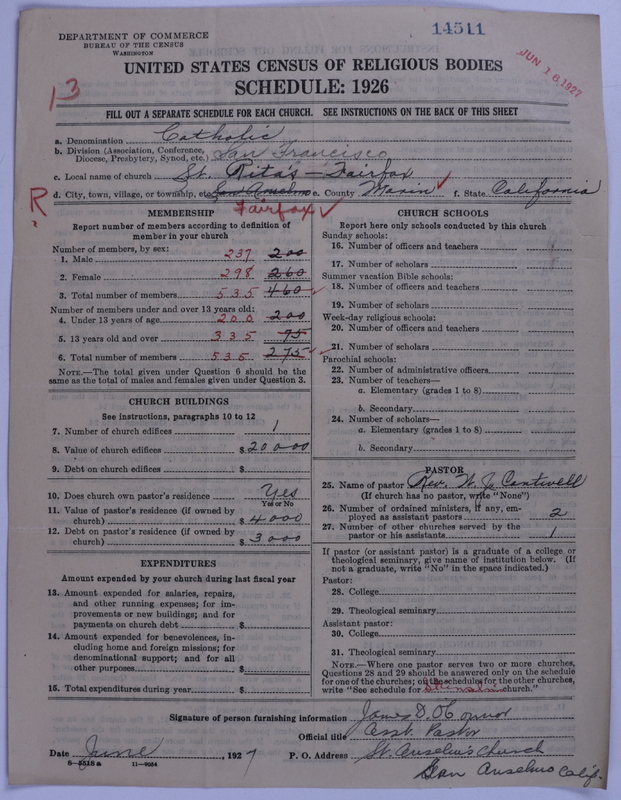 14511
DEPARTMENT OF COMMERCE
BUREAU OF THE CENSUS
WASHINGTON
JUN 16 1927
UNITED STATES CENSUS OF RELIGIOUS BODIES
SCHEDULE: 1926
13
FILL OUT A SEPARATE SCHEDULE FOR EACH CHURCH. SEE INSTRUCTIONS ON THE BACK OF THIS SHEET
a. Denomination Catholic
b. Division (Association, Conference, Diocese, Presbytery, Synod, etc.) San Francisco
c. Local name of church St. Rita's – Fairfax
d. City, town, village, or township, etc. San Anselmo e. County Marin f. State California
R
?
Fairfax
MEMBERSHIP
Report number of members according to definition of
member in your church
Number of members, by sex:
1. Male 237 200
2. Female 298 260
3. Total number of members 535 460
Number of members under and over 13 years old:
4. Under 13 years of age 200 200
5. 13 years old and over 335 75
6. Total number of members 535 275
NOTE.—The total given under Question 6 should be
same as the total of males and females given under Question 3.
CHURCH BUILDINGS
See instructions, paragraphs 10 to 12
7. Number of church edifices 1
8. Value of church edifices $20000
9. Debt on church edifices $
10. Does church own pastor's residence Yes
Yes or No
11. Value of pastor's residence (if owned by
church) $4000
12. Debt on pastor's residence (if owned by
church) $3000
EXPENDITURES
Amount expended by your church during last fiscal year
13. Amount expended for salaries, repairs,
and other running expenses; for im-
provements or new buildings; and for
payments on church debt $
14. Amount expended for benevolences, in-
cluding home and foreign missions; for
denominational support; and for all
other purposes $
15. Total expenditures during year $
CHURCH SCHOOLS
Report here only schools conducted by this church
Sunday schools:
16. Number of officers and teachers
17. Number of scholars
Summer vacation Bible schools:
18. Number of officers and teachers
19. Number of scholars
Week-day religious schools:
20. Number of officers and teachers
21. Number of scholars
Parochial schools:
22. Number of administrative officers
23. Number of teachers—
a. Elementary (grades 1 to 8)
b. Secondary
24. Number of scholars—
a. Elementary (grades 1 to 8)
b. Secondary
PASTOR
25. Name of pastor Rev. W. J. Cantwell
(If church has no pastor, write "None")
26. Number of ordained ministers, if any, em-
ployed as assistant pastors 2
27. Number of other churches served by the
pastor or his assistants 1
If pastor (or assistant pastor) is a graduate of a college or
theological seminary, give name of institution below. (If
not a graduate, write "No" in the space indicated.)
Pastor:
28. College
29. Theological seminary
Assistant pastor:
30. College
31. Theological seminary
NOTE.—Where one pastor serves two or more churches,
Questions 28 and 29 should be answered only on the schedule
for one of the churches; on the schedules for the other churches,
write "See schedule for church."
Signature of person furnishing information James D. O'Connor
Official title Asst. Pastor
Date June, 1927 P. O. Address St. Anselm's Church
San Anselmo Calif.
8—5518 a 11—9054